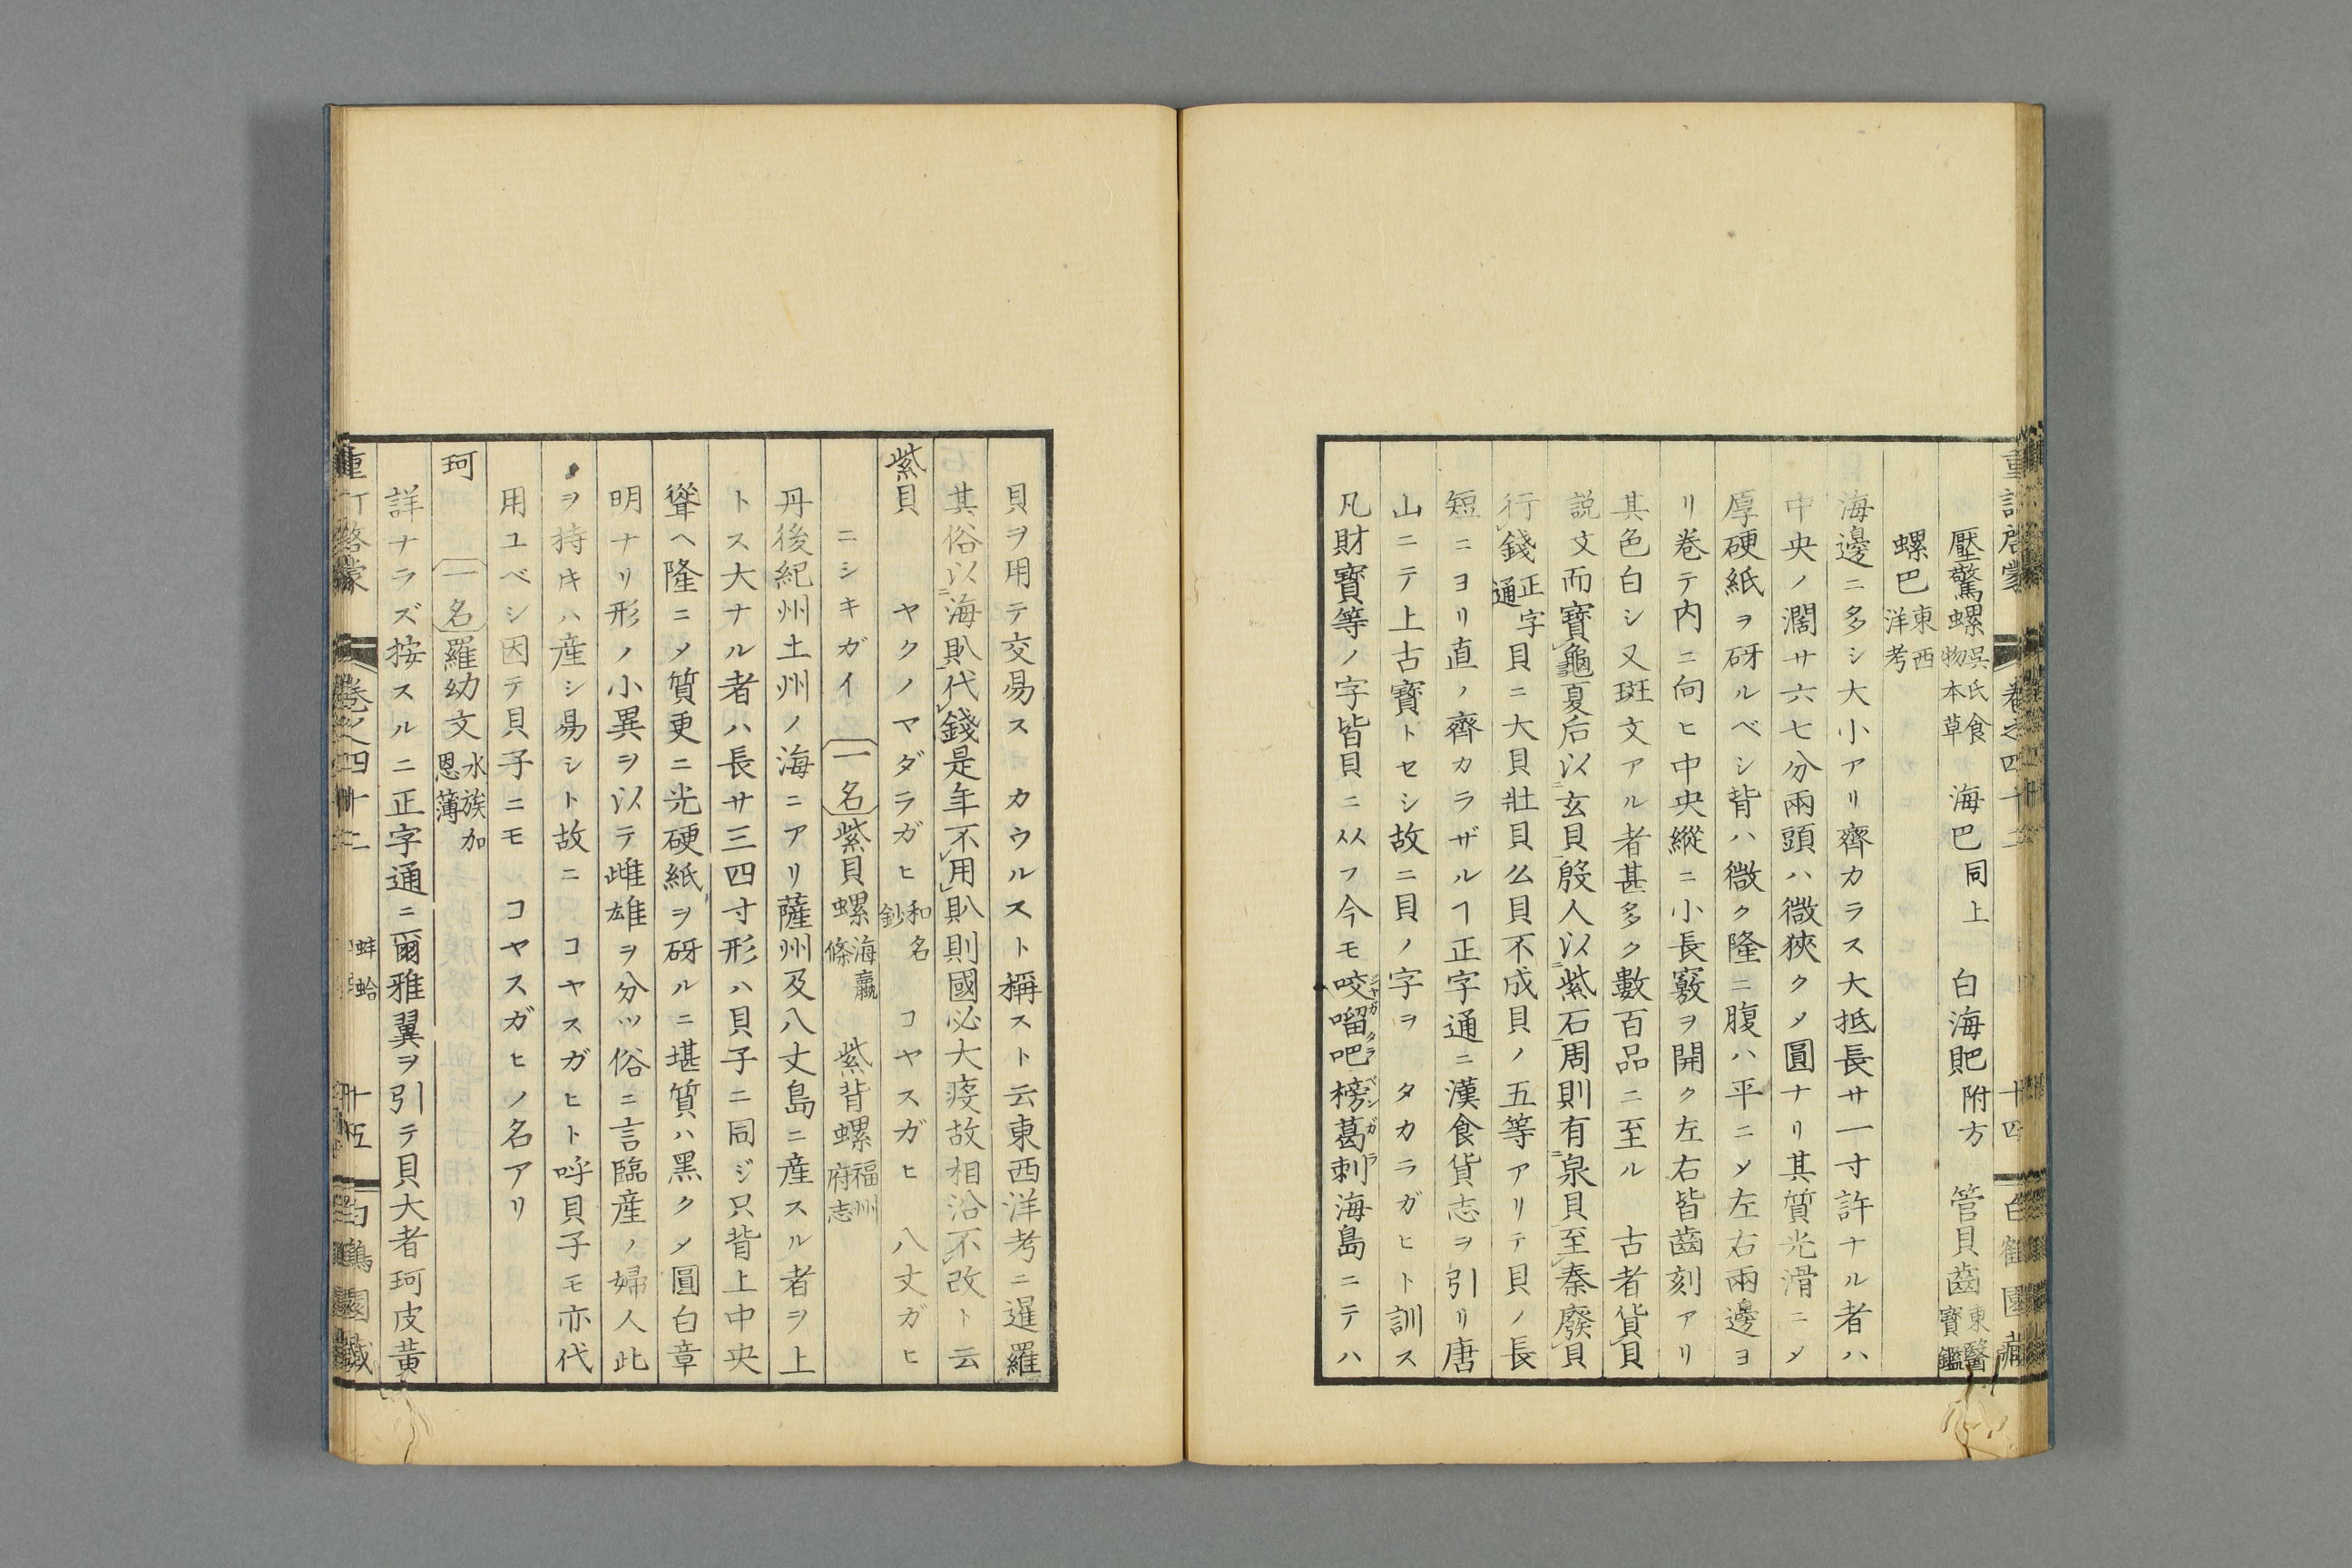 重訂啓蒙 卷之四十二 十四 白鶴園藏
壓驚螺 呉氏食物本草 海巴 同上 白海䏢 附方 管貝齒 東醫寶鑑
螺巴 東西洋考
海邊ニ多シ大小アリ齊カラス大抵長サ一寸許ナル者ハ
中央ノ濶サ六七分兩頭ハ微狹クメ圓ナリ其質光滑ニメ
厚硬紙ヲ砑ルベシ背ハ微ク隆ニ腹ハ平ニメ左右兩邊ヨ
リ巻テ内ニ向ヒ中央縱ニ小長竅ヲ開ク左右皆齒刻アリ
其色白シ又斑文アル者甚多ク數百品ニ至ル 古者貨貝
説文而寶龜夏后以玄貝殷人以紫石周則有泉貝至秦廢貝
行錢 正字通 貝ニ大貝壯貝幺貝不成貝ノ五等アリテ貝ノ長
短ニヨリ直ノ齊カラザルヿ正字通ニ漢食貨志ヲ引リ唐
山ニテ上古寶トセシ故ニ貝ノ字ヲ タカラガヒト訓ス
凡財寶等ノ字皆貝ニ从フ今モ咬𠺕吧榜葛剌海島ニテハ
貝ヲ用テ交易ス カウルスト稱スト云東西洋考ニ暹羅
其俗以海𧴩代錢是年不用𧴩則國必大疫故相沿不改ト云
紫貝 ヤクノマダラガヒ 和名鈔 コヤスガヒ 八丈ガヒ
ニシキガイ 一名 紫貝螺 海蠃條 紫背螺 福州府志
丹後紀州土州ノ海ニアリ薩州及八丈島ニ産スル者ヲ上
トス大ナル者ハ長サ三四寸形ハ貝子ニ同ジ只背上中央
聳ヘ隆ニメ質更ニ光硬紙ヲ砑ルニ堪質ハ黑クメ圓白章
明ナリ形ノ小異ヲ以テ雌雄ヲ分ツ俗ニ言臨産ノ婦人此
ヲ持キハ産シ易シト故ニ コヤスガヒト呼貝子モ亦代
用ユベシ因テ貝子ニモ コヤスガヒノ名アリ
珂 一名 羅幼文 水族加恩簿
詳ナラズ按スルニ正字通ニ爾雅翼ヲ引テ貝大者珂皮黄
重訂啓蒙 卷之四十二 蚌蛤 十五 白鶴園藏